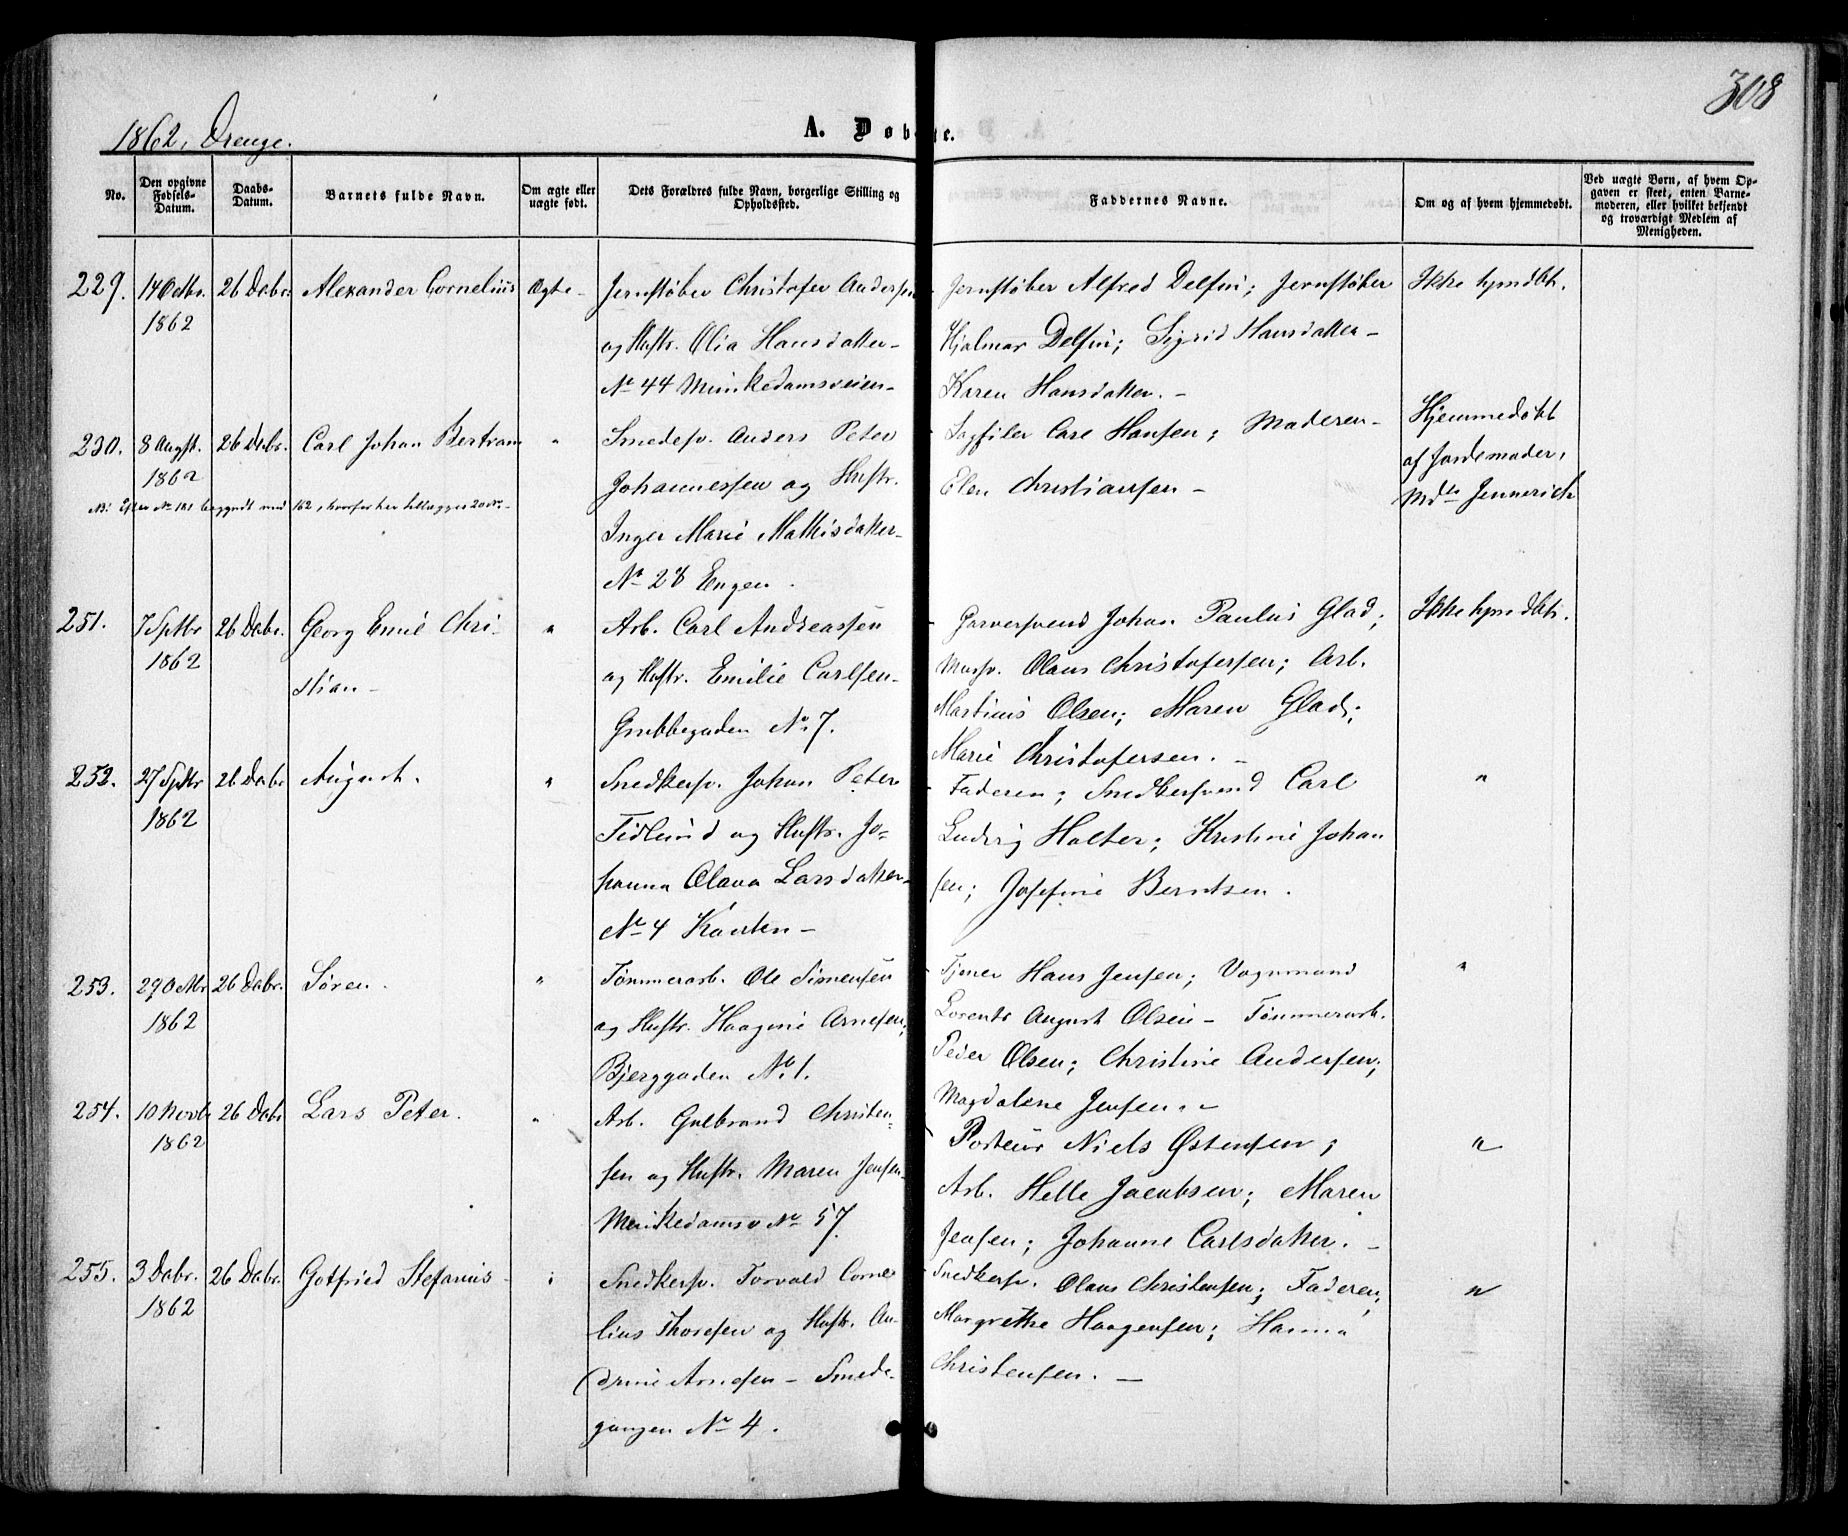 308
1862, Drenge.
A. Døbte.
No.
Den opgivne Fødsels-Datum.
Daabs-Datum.
Barnets fulde Navn.
Om ægte eller uægte født.
Dets Forældres fulde Navn, borgerlige Stilling og Opholdssted.
Faddernes Navne.
Om og af hvem hjemmedøbt.
Ved uægte Børn, af hvem Opgaven er skeet, enten Barnemoderen, eller hvilket bekjendt og troværdigt Medlem af Menigheden.
229. 14 Octbr. 1862 26 Dcbr. Alexander Cornelius Ægte
Jernstøber Christofer Andersen
og Hustr. Olia Hansdatter
No 44 Munkedamsveien
Jernstøber Alfred Delfin; Jernstøber
Hjalmar Delfin; Sigrid Hansdatter
Karen Hansdatter.
Ikke hjmdbt.
230. 8 Augst. 1862 26 Decbr. Carl Johan Bertram "
Smedesv. Anders Peter
Johannessen og Hustr.
Inger Marie Mathisdatter
No 28 Engen.
Sagfiler Carl Hansen; Moderen
Elen Christiansen
Hjemmedøbt
af Jordemoder,
Mde Jennerich
NB: Efter No 181 begyndt med 162, hvorfor her tillægges 20 No.
251. 7 Sptbr 1862 26 Dcbr. Georg Emil Chri-
stian
"
Arb. Carl Andreassen
og Hustr. Emilie Carlsen
Grubbegaden No. 7.
Garversvend Johan Paulus Glad;
Mursv. Olaus Christofersen; Arb.
Martinus Olsen; Maren Glad;
Marie Christofersen.
Ikke hjmdbt.
252. 27 Sptbr 1862 26 Dcbr August. "
Snedkersv. Johan Peter
Tidlund og Hustr. Jo-
hanna Olava Larsdatter
No 4 Kanten
Faderen; Snedkersvend Carl
Ludvig Holter; Kristine Johan
sen; Josefine Berntsen.
"
253. 29 Octbr 1862 26 Dcbr. Søren. "
Tømmerarb. Ole Simensen
og Hustr. Haagine Arnesen,
Bjerggaden No. 1.
Tjener Hans Jensen; Vognmand
Lorents August Olsen Tømmerarb.
Peder Olsen; Christine Andersen;
Magdalene Jensen.
"
254. 10 Novb 1862 26 Dcbr Lars Peter. "
Arb. Gulbrand Christen-
sen og Hustr. Maren Jensen
Munkedamsv No 57.
Porteur Niels Østensen;
Arb. Helle Jacobsen; Maren
Jensen; Johanne Carlsdatter.
"
255. 3 Dcbr. 1862 26 Dcbr. Gotfried Stefanus "
Snedkersv. Torvald Corne
lius Thoresen og Hustr. An-
drine Arnesen Smede-
gangen No 4.
Snedkersv. Olaus Christensen; Faderen;
Margrethe Haagensen; Hanna
Christensen.
"